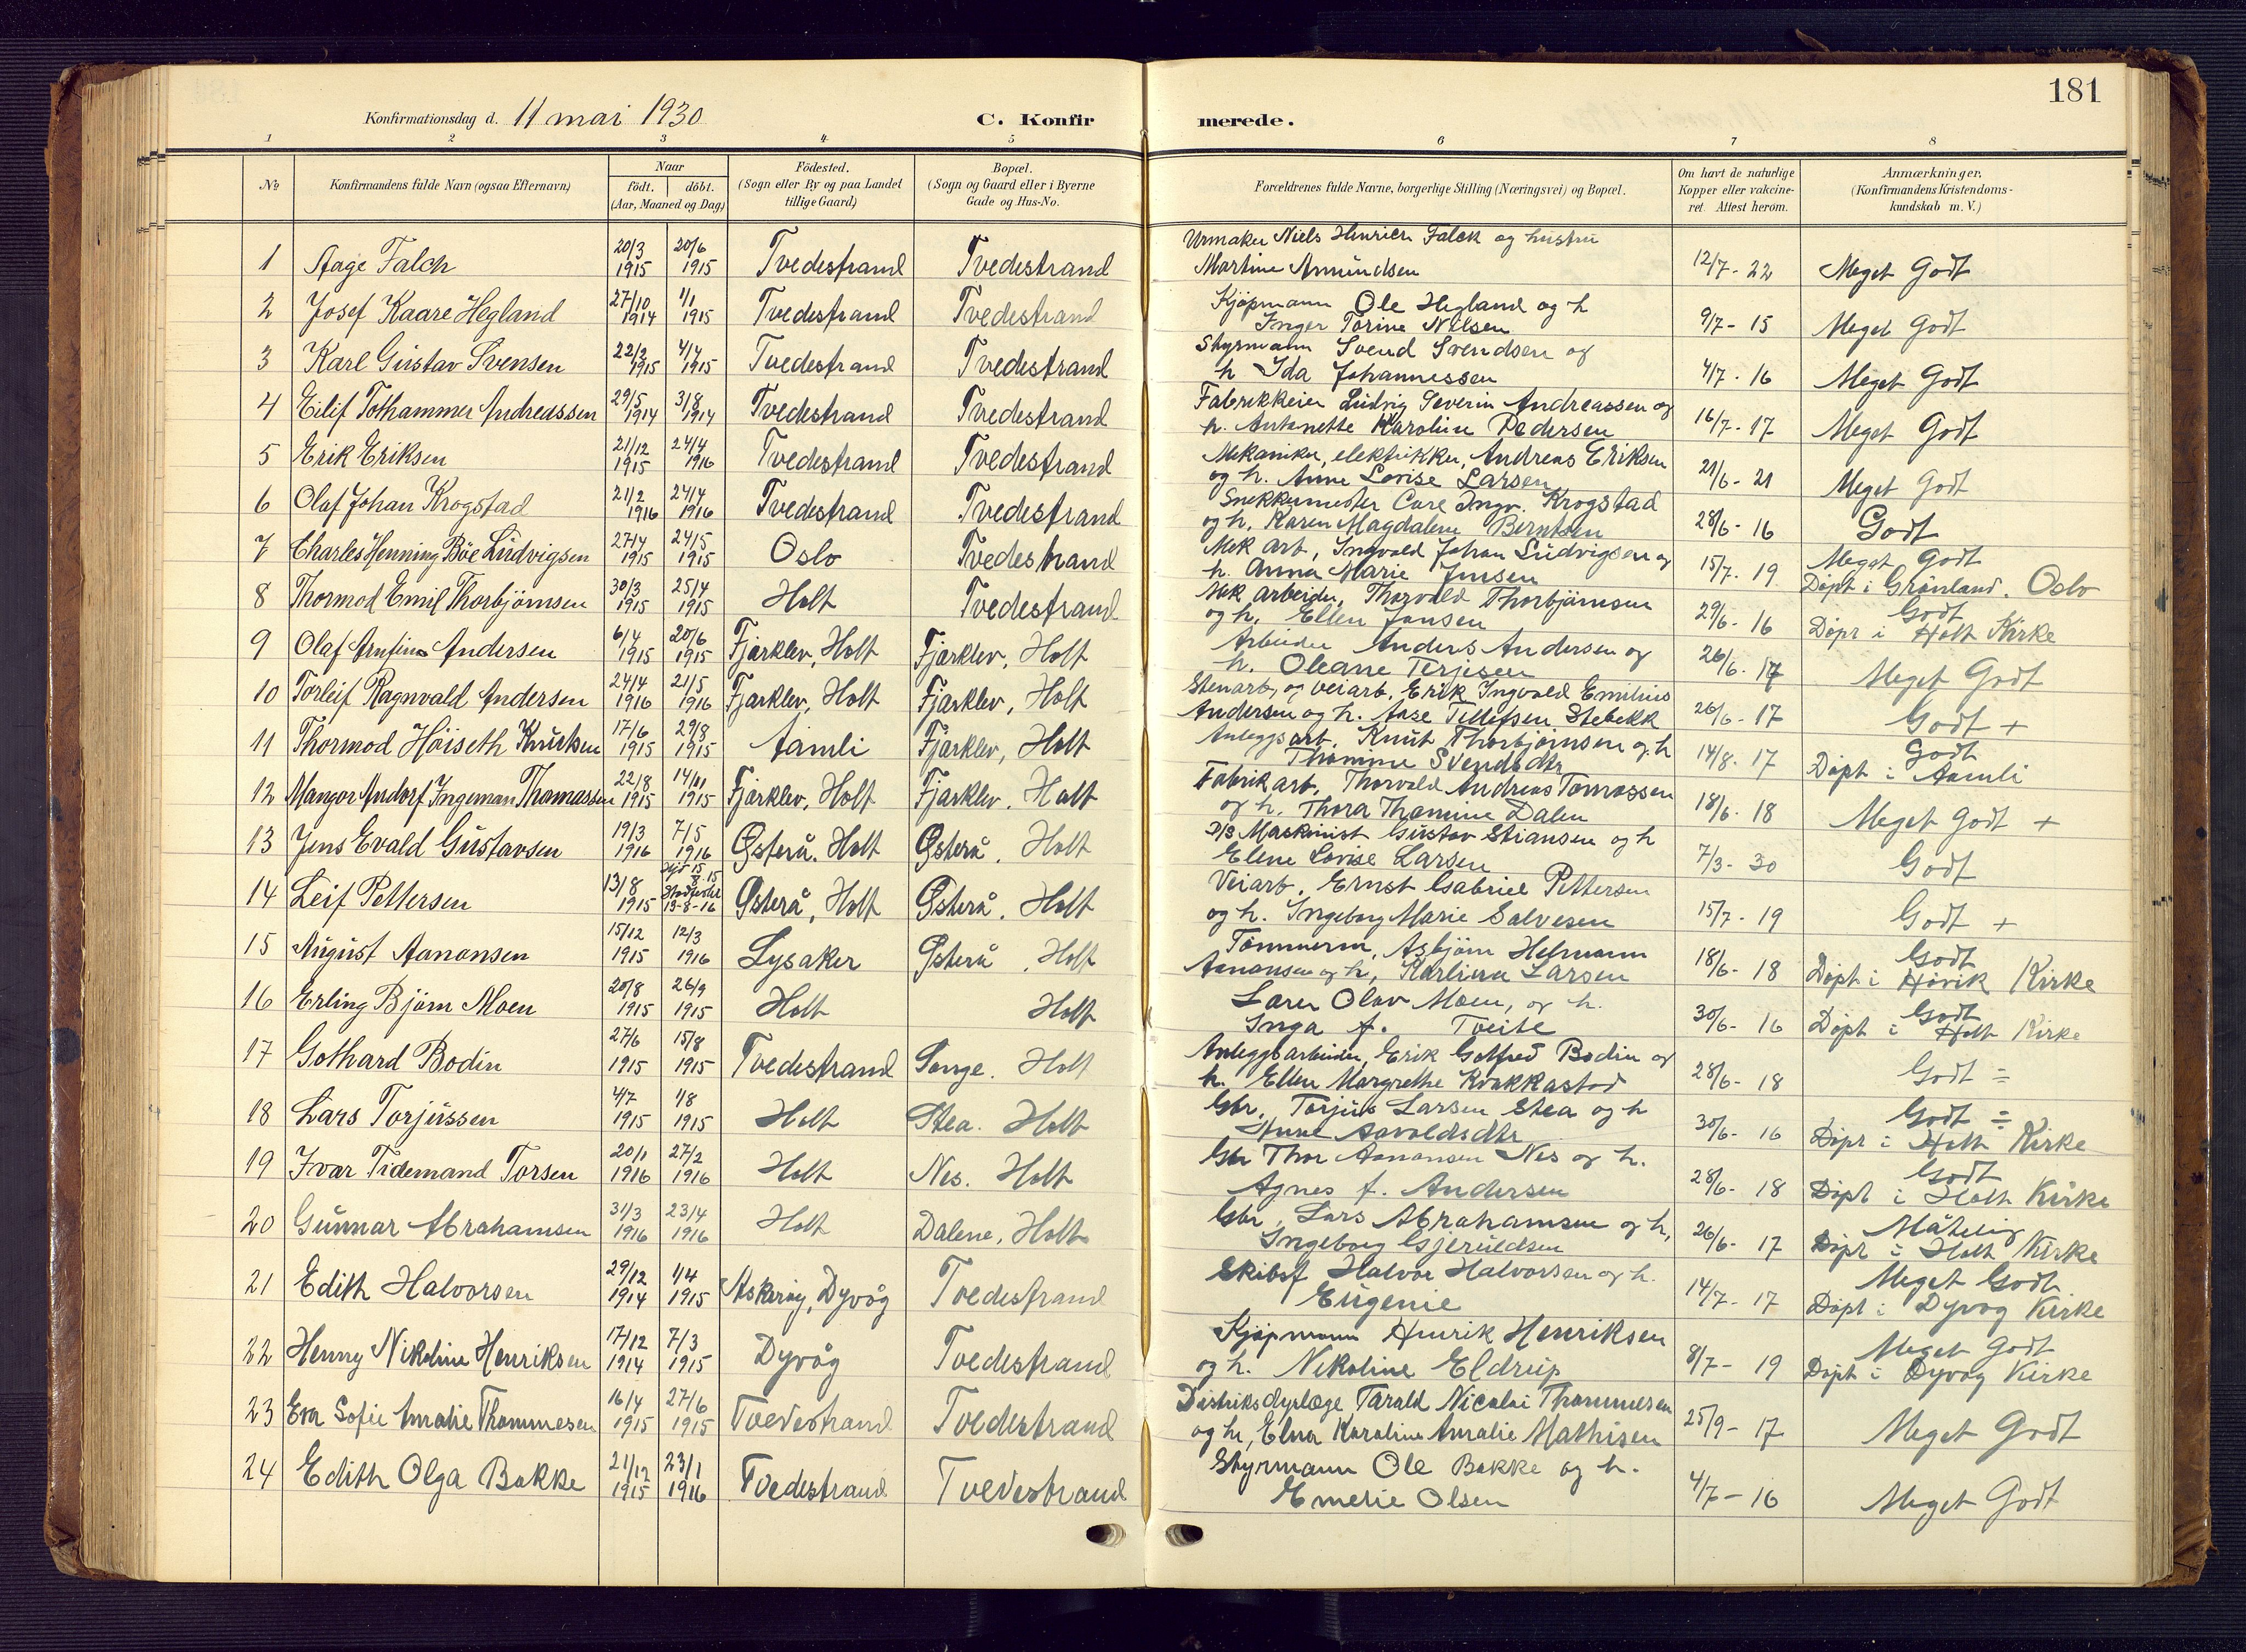 181
Konfirmationsdag d. 11 mai 1930 C. Konfirmerede.
1 2 3 4 5 6 7 8
No
Konfirmandens fulde Navn (ogsaa Efternavn)
Naar
födt. döbt.
(Aar, Maaned og Dag)
Födested.
(Sogn eller By og paa Landet
tillige Gaard)
Bopæl.
(Sogn og Gaard eller i Byerne
Gade og Hus-No.
Forældrenes fulde Navne, borgerlige Stilling (Næringsvei) og Bopæl.
Om havt de naturlige
Kopper eller vakcine-
ret. Attest herom.
Anmærkninger.
(Konfirmandens Kristendoms-
kundskab m. V.)
1 Aage Falch 20/3 1915 20/6 1915 Tvedestrand Tvedestrand Urmaker Niels Henrich Falck og hustru
Martine Amundsen 12/7-22 Meget Godt
2 Josef Kaare Hegland 27/10 1914 1/1 1915 Tvedestrand Tvedestrand Kjøpmann Ole Hegland og h
Inger Torine Nilsen 9/7-15 Meget Godt
3 Karl Gustav Svensen 22/2 1915 4/4 1915 Tvedestrand Tvedestrand Styrmann Svend Svendsen og
h Ida Johannessen 4/7-16 Meget Godt
4 Eilif Tothammer Andreassen 29/5 1914 3/8 1914 Tvedestrand Tvedestrand Fabrikkeier Ludvig Severin Andreassen og
h. Antonette Karoline Pedersen 16/7-17 Meget Godt
5 Erik Eriksen 21/12 1915 24/4 1916 Tvedestrand Tvedestrand Mekaniker, elektrikker, Andreas Eriksen
og h. Anne Lovise Larsen 21/6-21 Meget Godt
6 Olaf Johan Krogstad 21/2 1916 24/4 1916 Tvedestrand Tvedestrand Snekkermester Carl Ingv. Krogstad
og h. Karen Magdalene Berntsen 28/6-16 Godt
7 Charles Henning Bøe Ludvigsen 27/4 1915 24/5 1915 Oslo Tvedestrand Mek arb, Ingvald Johan Ludvigsen og
h. Anna Marie Jensen 15/7-19 Meget Godt
Døpt i Grønland. Oslo
8 Thormod Emil Thorbjørnsen 30/3 1915 25/4 1915 Holt Tvedestrand Mek arbeider, Thorvald Thorbjørnsen
og h. Ellen Jansen 29/6-16 Godt
Døpt i Holt Kirke
9 Olaf Arnfinn Andersen 6/4 1915 20/6 1915 Fjærklev, Holt Fjærklev, Holt Arbeider Anders Andersen og
h. Oleane Terjesen 26/6-17 Meget Godt
10 Torleif Ragnvald Andersen 24/4 1916 21/5 1916 Fjærklev, Holt Fjærklev, Holt Stenarb, og veiarb. Erik Ingvald Emilius
Andersen og h. Aase Tellefsen Stebekk 26/6-17 Godt +
11 Thormod Høiseth Knutsen 17/6 1915 29/8 1915 Aamli Fjærklev, Holt Anleggsarb. Knut Thorbjørnsen og h
Thomine Svendsdtr 14/8-17 Godt
Døpt i Aamli
12 Mangor Andorf Ingeman Thomassen 22/8 1915 14/11 1915 Fjærklev, Holt Fjærklev. Holt Fabrikarb. Thorvald Andreas Tomassen
og h. Thora Thomine Dalen 18/6-18 Meget Godt +
13 Jens Evald Gustavsen 19/3 1916 7/5 1916 Østerå. Holt Østerå. Holt D/S Maskinist Gustav Stiansen og h
Elene Lovise Larsen 7/3-30 Godt
14 Leif Pettersen 13/8 1915 13-8-16 Østerå, Holt Østerå. Holt Veiarb. Ernst Gabriel Pettersen
og h. Ingeborg Marie Salvesen 15/7-19 Godt +
15 August Aanonsen 15/12 1915 12/3 1916 Lysaker Østerå, Holt Tømmerm, Asbjørn Helmann
Aanonsen og h, Karliena Larsen 18/6-18 Godt
Døpt i Høvik Kirke
16 Erling Bjørn Moen 20/8 1915 26/9 1915 Holt Holt Lærer Olav Moen, og h.
Inga f. Tveite 30/6-16 Godt
Døpt i Holt Kirke
17 Gothard Bodin 27/6 1915 15/8 1915 Tvedestrand Songe. Holt Anleggsarbeider, Erik Gotfred Bodin og
h. Ellen Margrethe Kvakkastad 28/6-18 Godt ÷
18 Lars Torjussen 4/7 1915 1/8 1915 Holt Stea. Holt Gbr. Torjus Larsen Stea og h
Anne Aavoldsdtr 30/6-16 Godt ÷
Døpt i Holt Kirke
19 Ivar Tidemand Torsen 20/1 1916 27/2 1916 Holt Nes. Holt Gbr Thor Aanonsen Nes og h.
Agnes f. Andersen 28/6-18 Godt
Døpt i Holt Kirke
20 Gunnar Abrahamsen 31/3 1916 23/4 1916 Holt Dalene, Holt Gbr, Lars Abrahamsen og h,
Ingeborg Gjeruldsen 26/6-17 Måtelig
Døpt i Holt Kirke
21 Edith Halvorsen 29/12 1914 1/4 1915 Askerøy, Dyvåg Tvedestrand Skibsf Halvor Halvorsen og h.
Eugenie 14/7-17 Meget Godt
Døpt i Dyvåg Kirke
22 Henny Nikoline Henriksen 17/12 1914 7/3 1915 Dyvåg Tvedestrand Kjøpmann Henrik Henriksen
og h. Nikoline Eldrup 8/7-19 Meget Godt
Døpt i Dyvåg Kirke
23 Eva Sofie Amalie Thommesen 16/4 1915 27/6 1915 Tvedestrand Tvedestrand Distriksdyrlæge Tarald Nicolai Thommesen
og h, Elna Karoline Amalie Mathisen 25/9-17 Meget Godt
24 Edith Olga Bakke 21/12 1915 23/1 1916 Tvedestrand Tvedestrand Styrmann Ole Bakke og h.
Emelie Olsen 4/7-16 Meget Godt